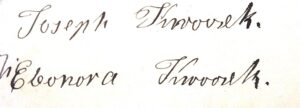 Joseph Kwosek.
Eleonora Kwosek.